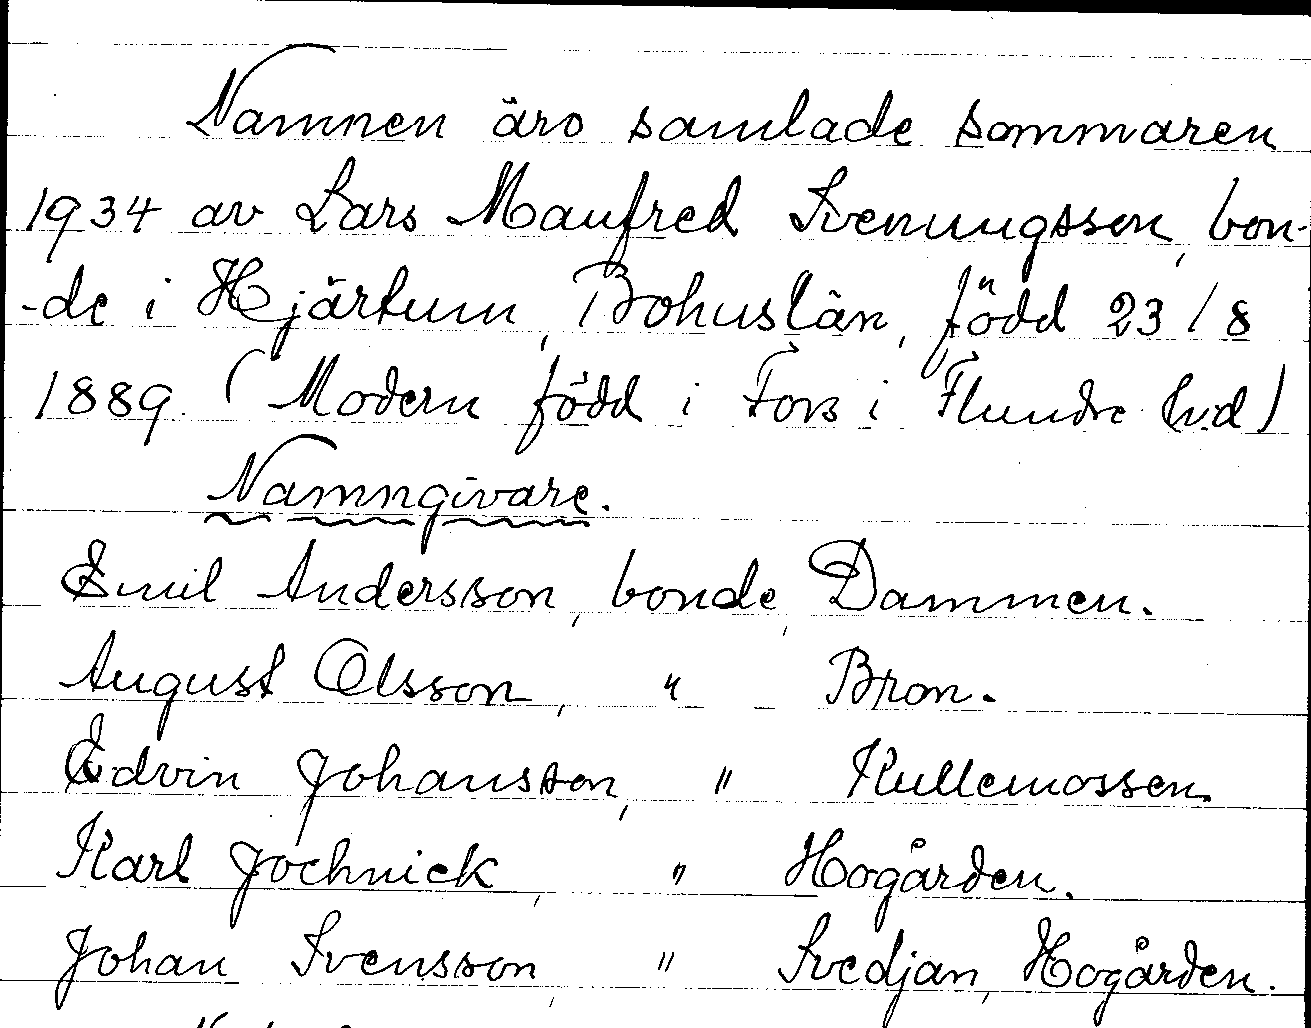 Namnen äro samlade sommaren
1934 av Lars Manfred Svenungsson, bon-
-de i Hjärtum, Bohuslän, född 23/8
1889. (Modern född i Fors i Flundre hd)
Namngivare.
Emil Andersson, bonde, Dammen.
August Olsson, " Bron.
Edvin Johansson, " Kullemossen.
Karl Jochnick, " Hogården.
Johan Svensson, " Svedjan, Hogården.